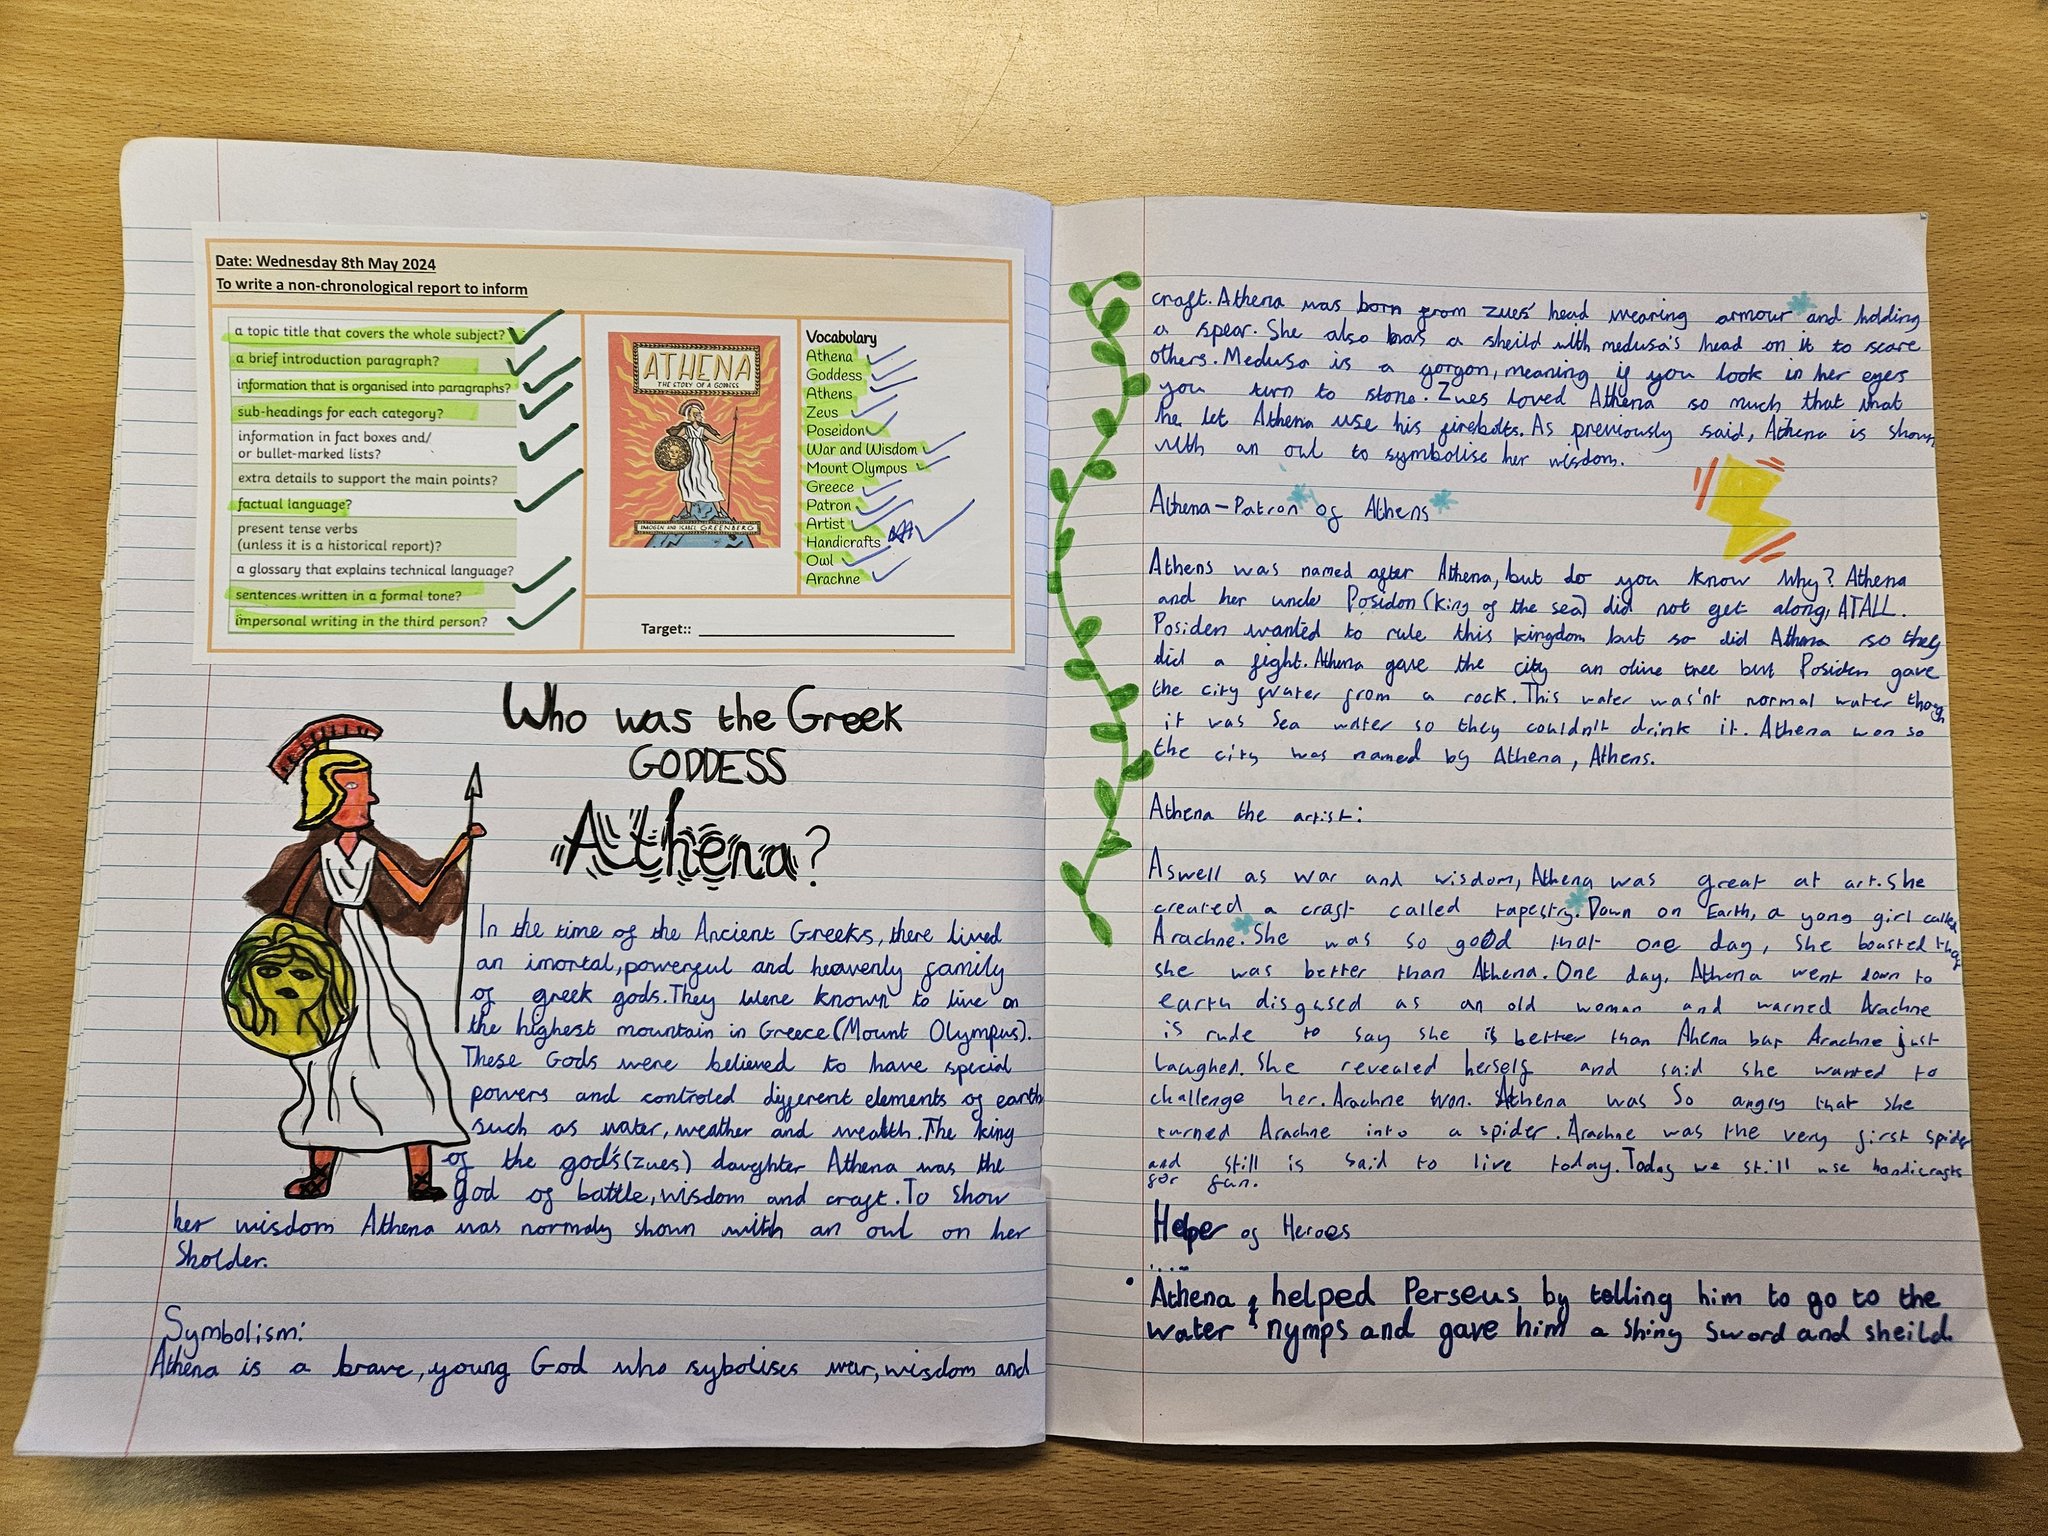 Date: Wednesday 8th May 2024
To write a non-chronological report to inform
a topic title that covers the whole subject?
a brief introduction paragraph?
information that is organised into paragraphs?
sub-headings for each category?
information in fact boxes and/
or bullet-marked lists?
extra details to support the main points?
factual language?
present tense verbs
(unless it is a historical report)?
a glossary that explains technical language?
sentences written in a formal tone?
impersonal writing in the third person?
ATHENA
THE STORY OF A GODDESS
IMOGEN AND ISABEL GREENBERG
Vocabulary
Athena
Goddess
Athens
Zeus
Poseidon
War and Wisdom
Mount Olympus
Greece
Patron
Artist
Handicrafts
Owl
Arachne
Target::
Who was the Greek
GODDESS
Athena?
In the time of the Ancient Greeks, there lived
an imortal, powerful and heavenly family
of greek gods. They were known to live on
the highest mountain in Greece (Mount Olympus).
These Gods were believed to have special
powers and controled different elements of earth
such as water, weather and wealth. The king
of the god's (zues) daughter Athena was the
god of battle, wisdom and craft. To show
her wisdom Athena was normaly shown with an owl on her
Sholder.
Symbolism:
Athena is a brave, young God who sybolises war, wisdom and
craft. Athena was born from zues' head wearing armour and holding
a spear. She also has a sheild with medusa's head on it to scare
others. Medusa is a gorgon, meaning if you look in her eyes
you turn to stone. Zues loved Athena so much that that
he let Athena use his firebolts. As previously said, Athena is shown
with an owl to symbolise her wisdom.
Athena - Patron of Athens
Athens was named after Athena, but do you know why? Athena
and her uncle Posidon (king of the sea) did not get along, ATALL.
Posiden wanted to rule this kingdom but so did Athena so they
did a fight. Athena gave the city an olive tree but Posiden gave
the city water from a rock. This water was'nt normal water though
it was Sea water so they couldn't drink it. Athena won so
the city was named by Athena, Athens.
Athena the artist:
Aswell as war and wisdom, Athena was great at art. She
created a craft called tapestry. Down on Earth, a yong girl called
Arachne. She was so good that one day, she boasted that
she was better than Athena. One day, Athena went down to
earth disgused as an old woman and warned Arachne
is rude to say she is better than Athena but Arachne just
laughed. She revealed herself and said she wanted to
challenge her. Arachne won. Athena was So angry that she
turned Arachne into a spider. Arachne was the very first spider
and still is said to live today. Today we still use handicrafts
for fun.
Helper of Heroes
• Athena helped Perseus by telling him to go to the
water nymps and gave him a shing sword and sheild.